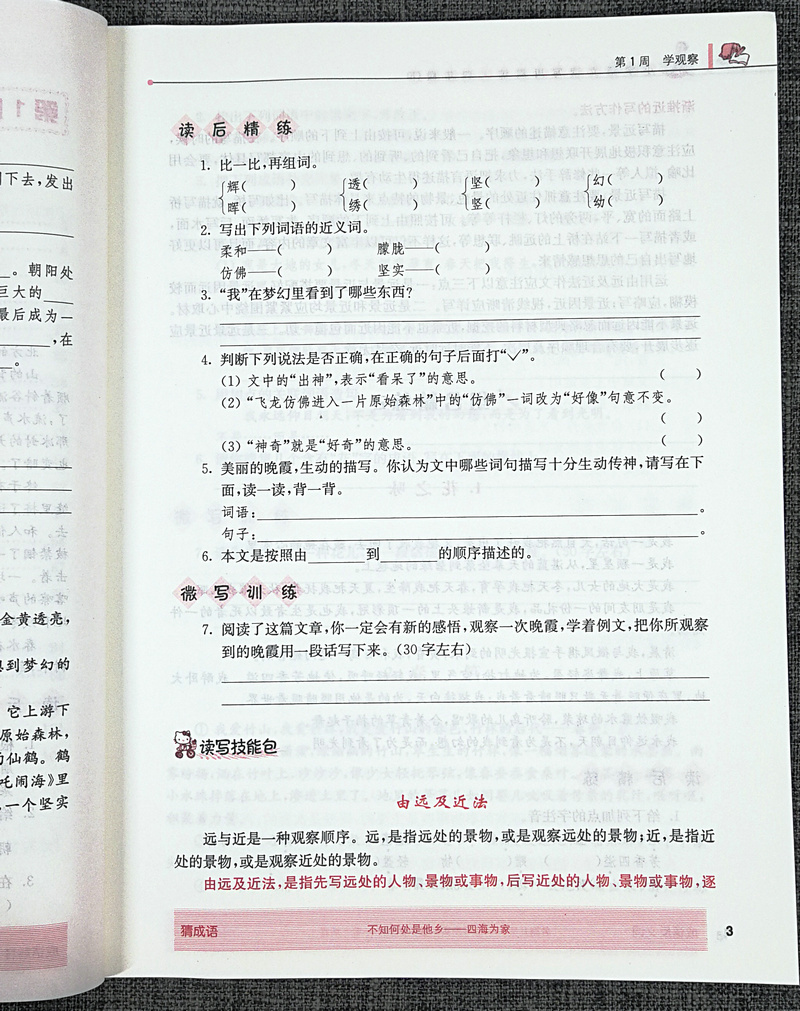 下去，发出
。朝阳处
巨大的
最后成为一
，在
。
金黄透亮，
梦幻的
它上游下
原始森林，
仙鹤。鹤
闹海》里
一个坚实
第1周 学观察
读后精练
1. 比一比，再组词。
辉( ) 透( ) 坚( ) 幻( )
晖( ) 绣( ) 竖( ) 幼( )
2. 写出下列词语的近义词。
柔和——( ) 朦胧——( )
仿佛——( ) 坚实——( )
3. “我”在梦幻里看到了哪些东西？
4. 判断下列说法是否正确，在正确的句子后面打“✓”。
(1) 文中的“出神”，表示“看呆了”的意思。 ( )
(2) “飞龙仿佛进入一片原始森林”中的“仿佛”一词改为“好像”句意不变。
( )
(3) “神奇”就是“好奇”的意思。 ( )
5. 美丽的晚霞，生动的描写。你认为文中哪些词句描写十分生动传神，请写在下
面，读一读，背一背。
词语：。
句子：。
6. 本文是按照由 到 的顺序描述的。
微写训练
7. 阅读了这篇文章，你一定会有新的感悟，观察一次晚霞，学着例文，把你所观察
到的晚霞用一段话写下来。(30字左右)
读写技能包
由远及近法
远与近是一种观察顺序。远，是指远处的景物，或是观察远处的景物；近，是指近
处的景物，或是观察近处的景物。
由远及近法，是指先写远处的人物、景物或事物，后写近处的人物、景物或事物，逐
猜成语 不知何处是他乡——四海为家 3